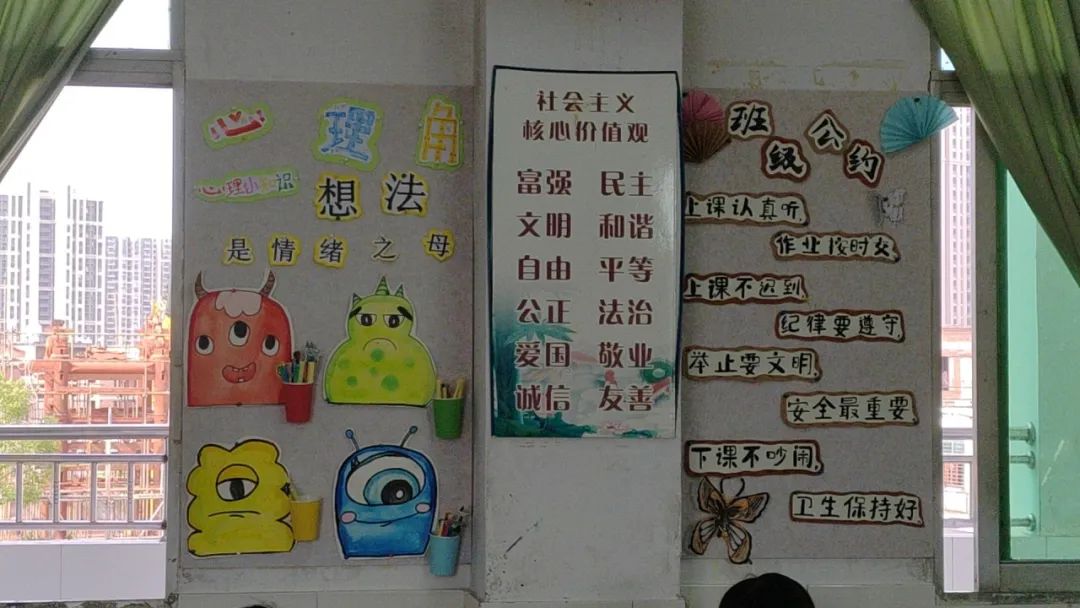 心理角
心理小知识
想法
是情绪之母
社会主义
核心价值观
富强 民主
文明 和谐
自由 平等
公正 法治
爱国 敬业
诚信 友善
班级公约
上课认真听,
作业按时交,
上课不迟到
纪律要遵守,
举止要文明,
安全最重要
下课不吵闹,
卫生保持好,